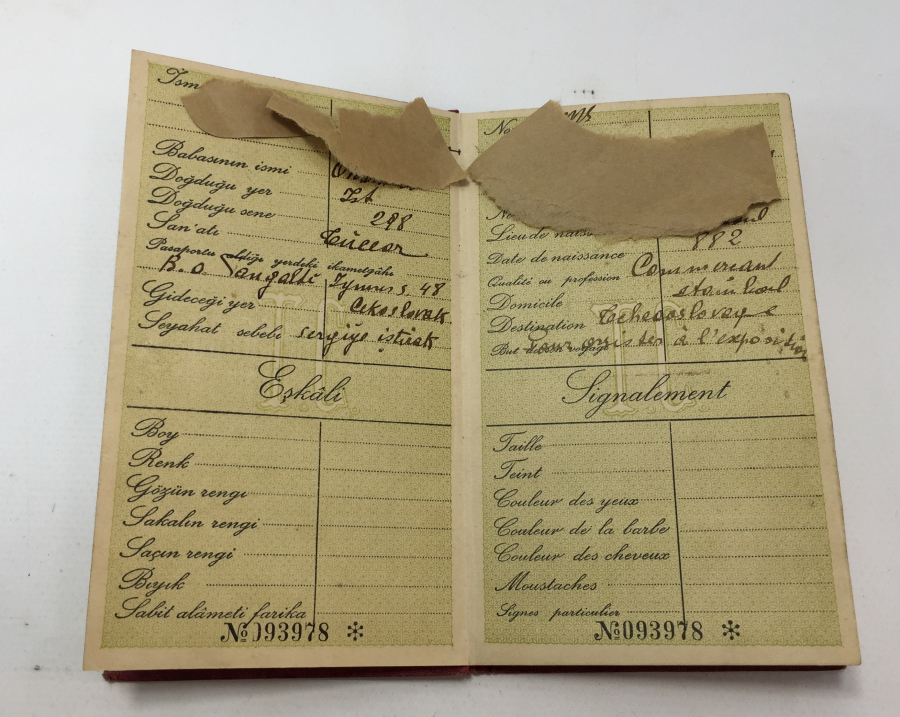 İsm
Babasının ismi
Doğduğu yer İst
Doğduğu sene 298
San'atı Tüccar
Pasaportu aldığı yerdeki ikametgâhı
B.O. Pangaltı 48
Gideceği yer Çekoslovak
Seyahat sebebi sergiye iştirak
Eşkâli
Boy
Renk
Gözün rengi
Sakalın rengi
Saçın rengi
Bıyık
Sabit alâmeti farika
№ 093978 *
No
No
Lieu de naiss
Date de naissance 882
Qualité ou profession Commerçant
Domicile
Destination Tchecoslovaque
But voyage assister à l'exposition
Signalement
Taille
Teint
Couleur des yeux
Couleur de la barbe
Couleur des cheveux
Moustaches
Signes particulier
№ 093978 *